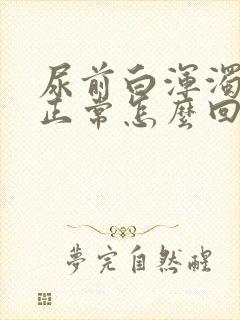 尿前白渾濁
正常怎麼回
夢完自然醒